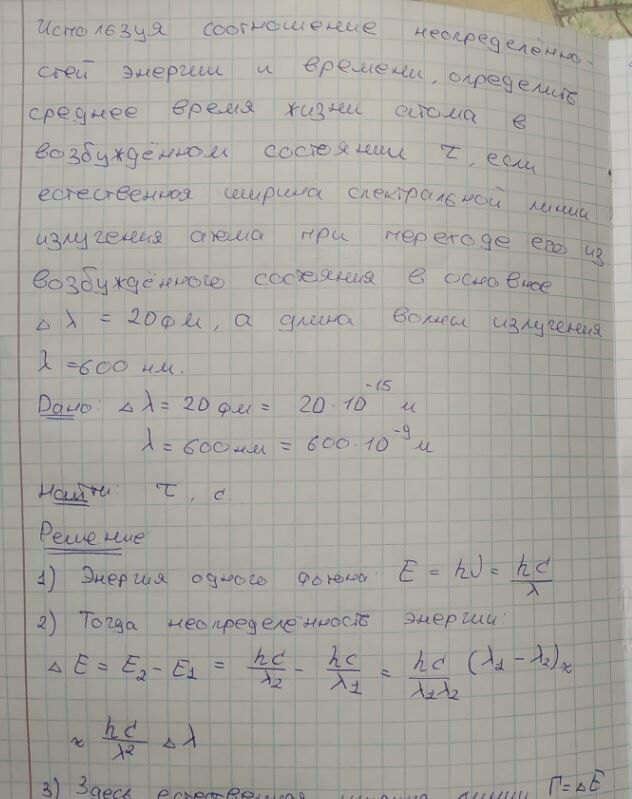 Используя соотношение неопределённо-
стей энергии и времени, определить
среднее время жизни атома в
возбуждённом состоянии τ, если
естественная ширина спектральной линии
излучения атома при переходе его из
возбуждённого состояния в основное
Δλ = 20 фм, а длина волны излучения
λ = 600 нм.
Дано: Δλ = 20 фм = 20·10⁻¹⁵ м
λ = 600 нм = 600·10⁻⁹ м
Найти: τ, с
Решение
1) Энергия одного фотона E = hν = hc/λ
2) Тогда неопределённость энергии:
ΔE = E₂ - E₁ = hc/λ₂ - hc/λ₁ = hc/(λ₁λ₂) (λ₁ - λ₂) ≈
≈ hc/λ² Δλ
3) Здесь естественная ширина линии Γ = ΔE